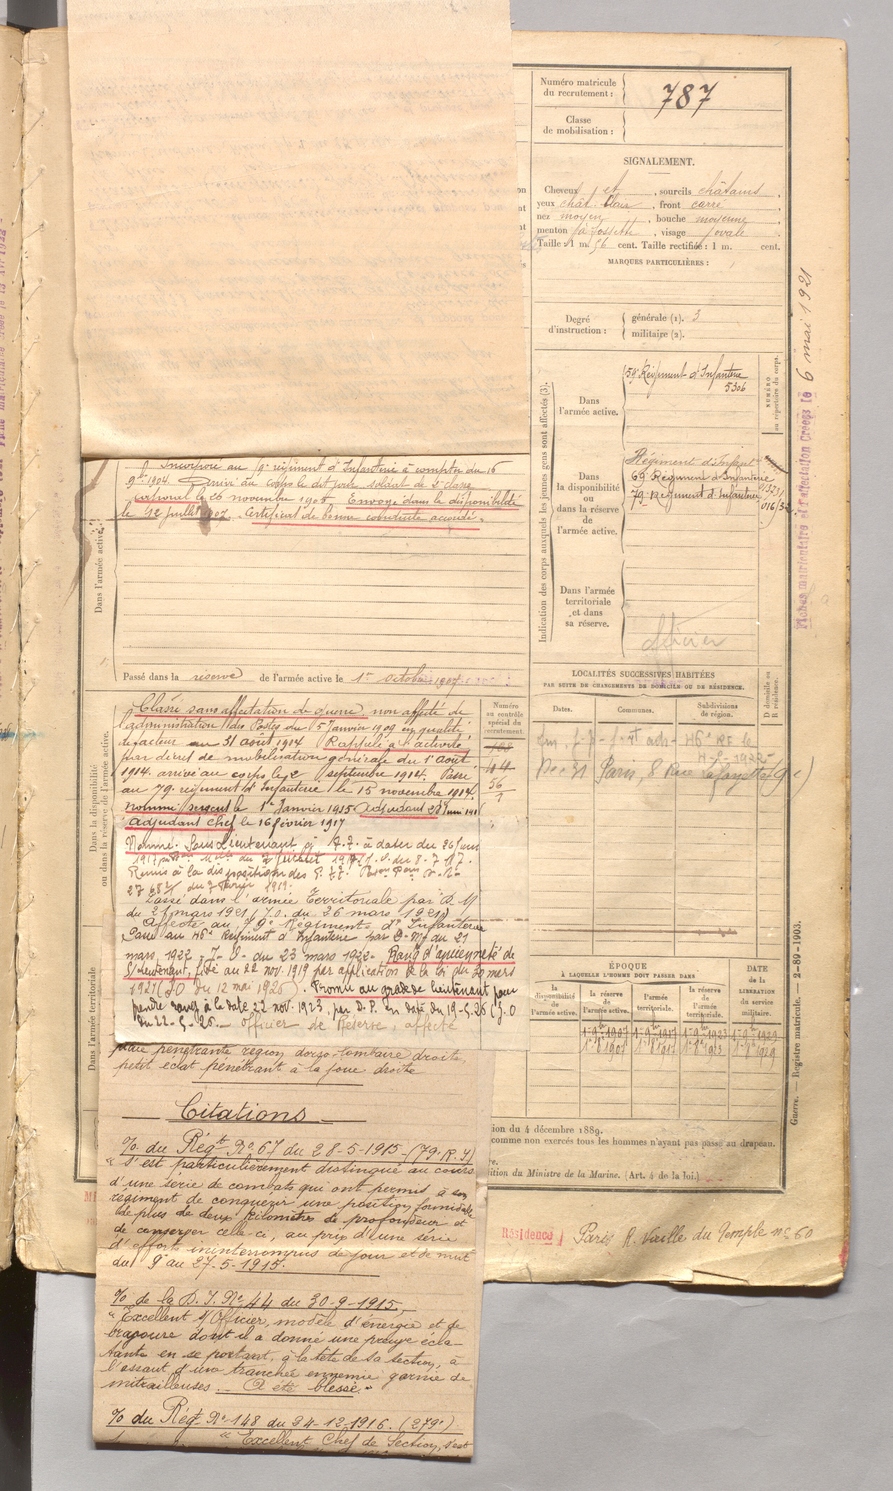 Numéro matricule
du recrutement :
787
Classe
de mobilisation :
SIGNALEMENT.
Cheveux et , sourcils châtains ,
yeux chât. clair , front carré ,
nez moyen , bouche moyenne ,
menton à fossette , visage ovale .
Taille : 1 m. 56 cent. Taille rectifiée : 1 m. cent.
MARQUES PARTICULIÈRES :
Degré
d'instruction :
générale (1). 3
militaire (2).
Indication des corps auxquels les jeunes gens sont affectés (3).
Dans
l'armée active.
Régiment d'Infanterie
5306
NUMÉRO
au répertoire du corps.
Dans
la disponibilité
ou
dans la réserve
de
l'armée active.
Régiment d'Infant
69 Régiment d'Infanterie
79e Régiment d'Infanterie
Dans l'armée
territoriale
et dans
sa réserve.
officier
Fiches matriculaire et d'affectation Créées le 6 mai 1921
Dans l'armée active.
Incorporé au régiment d'Infanterie à compter du 16
9bre 1904. Arrivé au corps le dit jour soldat de 2e classe
caporal le 26 novembre 1905 Envoyé dans la disponibilité
le 12 juillet 1907. Certificat de bonne conduite accordé.
Passé dans la réserve de l'armée active le 1er octobre 1907
Dans la disponibilité
ou dans la réserve de l'armée active.
Numéro
au contrôle
spécial du
recrutement.
Classé sans affectation de guerre, non affecté de
l'administration des Postes du 5 Janvier 1909 en qualité
de facteur au 31 août 1904 Rappelé à l'activité
par décret de mobilisation générale du 1er août
1914. arrivé au corps le 2 septembre 1914. Passé
au 79e régiment d'Infanterie le 15 novembre 1914.
nommé sergent le 1er Janvier 1915 adjudant
adjudant chef le 16 février 1917
Nommé Sous Lieutenant à T.T. à dater du 26 juin
1917 du 7 juillet 1917 J.O. du 8-7-17.
Remis à la disposition des P.T.T.
du 7 février 1919.
Passé dans l'armée Territoriale par D.M
du 21 mars 1921 J.O. du 26 mars 1921
Affecté au 79e Régiment d'Infanterie
Passé au 46e Régiment d'Infanterie par D.M. du 21
mars 1922 - J.O. du 23 mars 1922 - Rang d'ancienneté de
S/Lieutenant, fixé au 22 nov. 1919 par application de la loi du 20 mars
(J.O du 12 mai 1926). Promu au grade de lieutenant pour
prendre rang à la date 22 nov. 1923, par D.P. en date du 19-5-26 (J.O
du 22-5-26. Officier de Réserve, affecté
Dans l'armée territoriale
LOCALITÉS SUCCESSIVES HABITÉES
PAR SUITE DE CHANGEMENTS DE DOMICILE OU DE RÉSIDENCE.
Dates.
Communes.
Subdivisions
de région.
D domicile ou
R résidence.
46e RF le
1922
Dec 31 Paris, 8 Rue Lafayette (9e)
ÉPOQUE
À LAQUELLE L'HOMME DOIT PASSER DANS
la
disponibilité
de
l'armée active.
la réserve
de
l'armée active.
l'armée
territoriale.
la réserve
de
l'armée
territoriale.
DATE
de la
LIBÉRATION
du service
militaire.
1er 8bre 1907 1er 8bre 1917 1er 8bre 1923 1er 8bre 1929
tion du 4 décembre 1889.
comme non exercés tous les hommes n'ayant pas passé au drapeau.
ition du Ministre de la Marine. (Art. 4 de la loi.)
Guerre. — Registre matricule. — 2-89-1903.
plaie pénétrante région dorso-lombaire droite,
petit éclat pénétrant à la joue droite
Citations
% du Régt No 67 du 28-5-1915 (79e R.I)
"S'est particulièrement distingué au cours
d'une série de combats qui ont permis à son
régiment de conquérir une position formidable
de plus de deux kilomètres de profondeur et
de conserver celle-ci, au prix d'une série
d'efforts ininterrompus de jour et de nuit
du 9 au 27-5-1915.
% de la D.I. No 44 du 30-9-1915.
"Excellent S/Officier, modèle d'énergie et de
bravoure dont il a donné une preuve écla-
tante en se portant, à la tête de sa section, à
l'assaut d'une tranchée ennemie garnie de
mitrailleuses. A été blessé."
% du Régt No 148 du 24-12-1916. (279e)
"Excellent Chef de Section, s'est
Résidence
Paris R. Vieille du Temple no 60